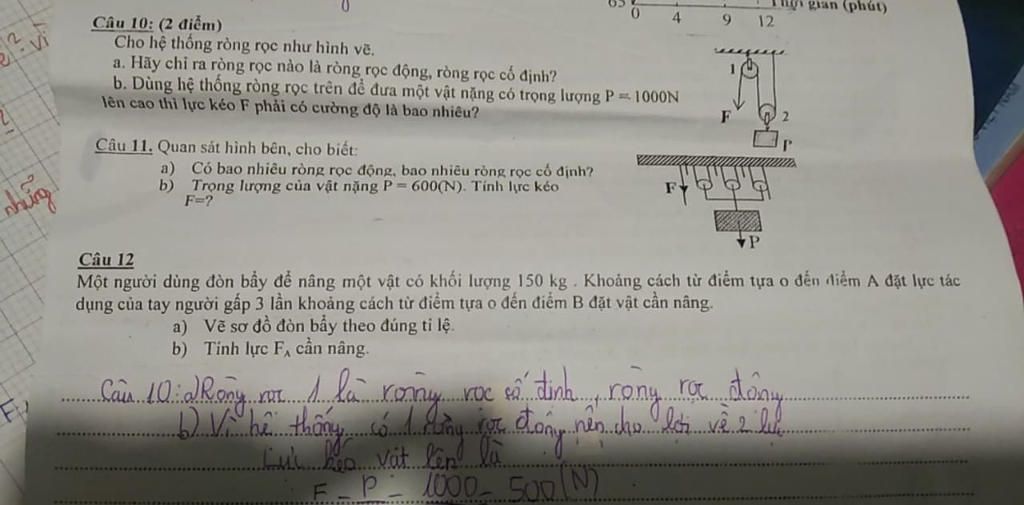 Thời gian (phút)
0 4 9 12
Câu 10: (2 điểm)
Cho hệ thống ròng rọc như hình vẽ.
a. Hãy chỉ ra ròng rọc nào là ròng rọc động, ròng rọc cố định?
b. Dùng hệ thống ròng rọc trên để đưa một vật nặng có trọng lượng P = 1000N
lên cao thì lực kéo F phải có cường độ là bao nhiêu?
1
F
2
P
Câu 11. Quan sát hình bên, cho biết:
a) Có bao nhiêu ròng rọc động, bao nhiêu ròng rọc cố định?
b) Trọng lượng của vật nặng P = 600(N). Tính lực kéo
F=?
F
P
Câu 12
Một người dùng đòn bẩy để nâng một vật có khối lượng 150 kg . Khoảng cách từ điểm tựa o đến điểm A đặt lực tác
dụng của tay người gấp 3 lần khoảng cách từ điểm tựa o đến điểm B đặt vật cần nâng.
a) Vẽ sơ đồ đòn bẩy theo đúng tỉ lệ.
b) Tính lực FA cần nâng.
Câu 10: a) Ròng rọc 1 là ròng rọc cố định, ròng rọc động
b) Vì hệ thống có 1 ròng rọc động nên cho lợi về 2 lực
Lực kéo vật lên là
F = P = 1000 = 500 (N)